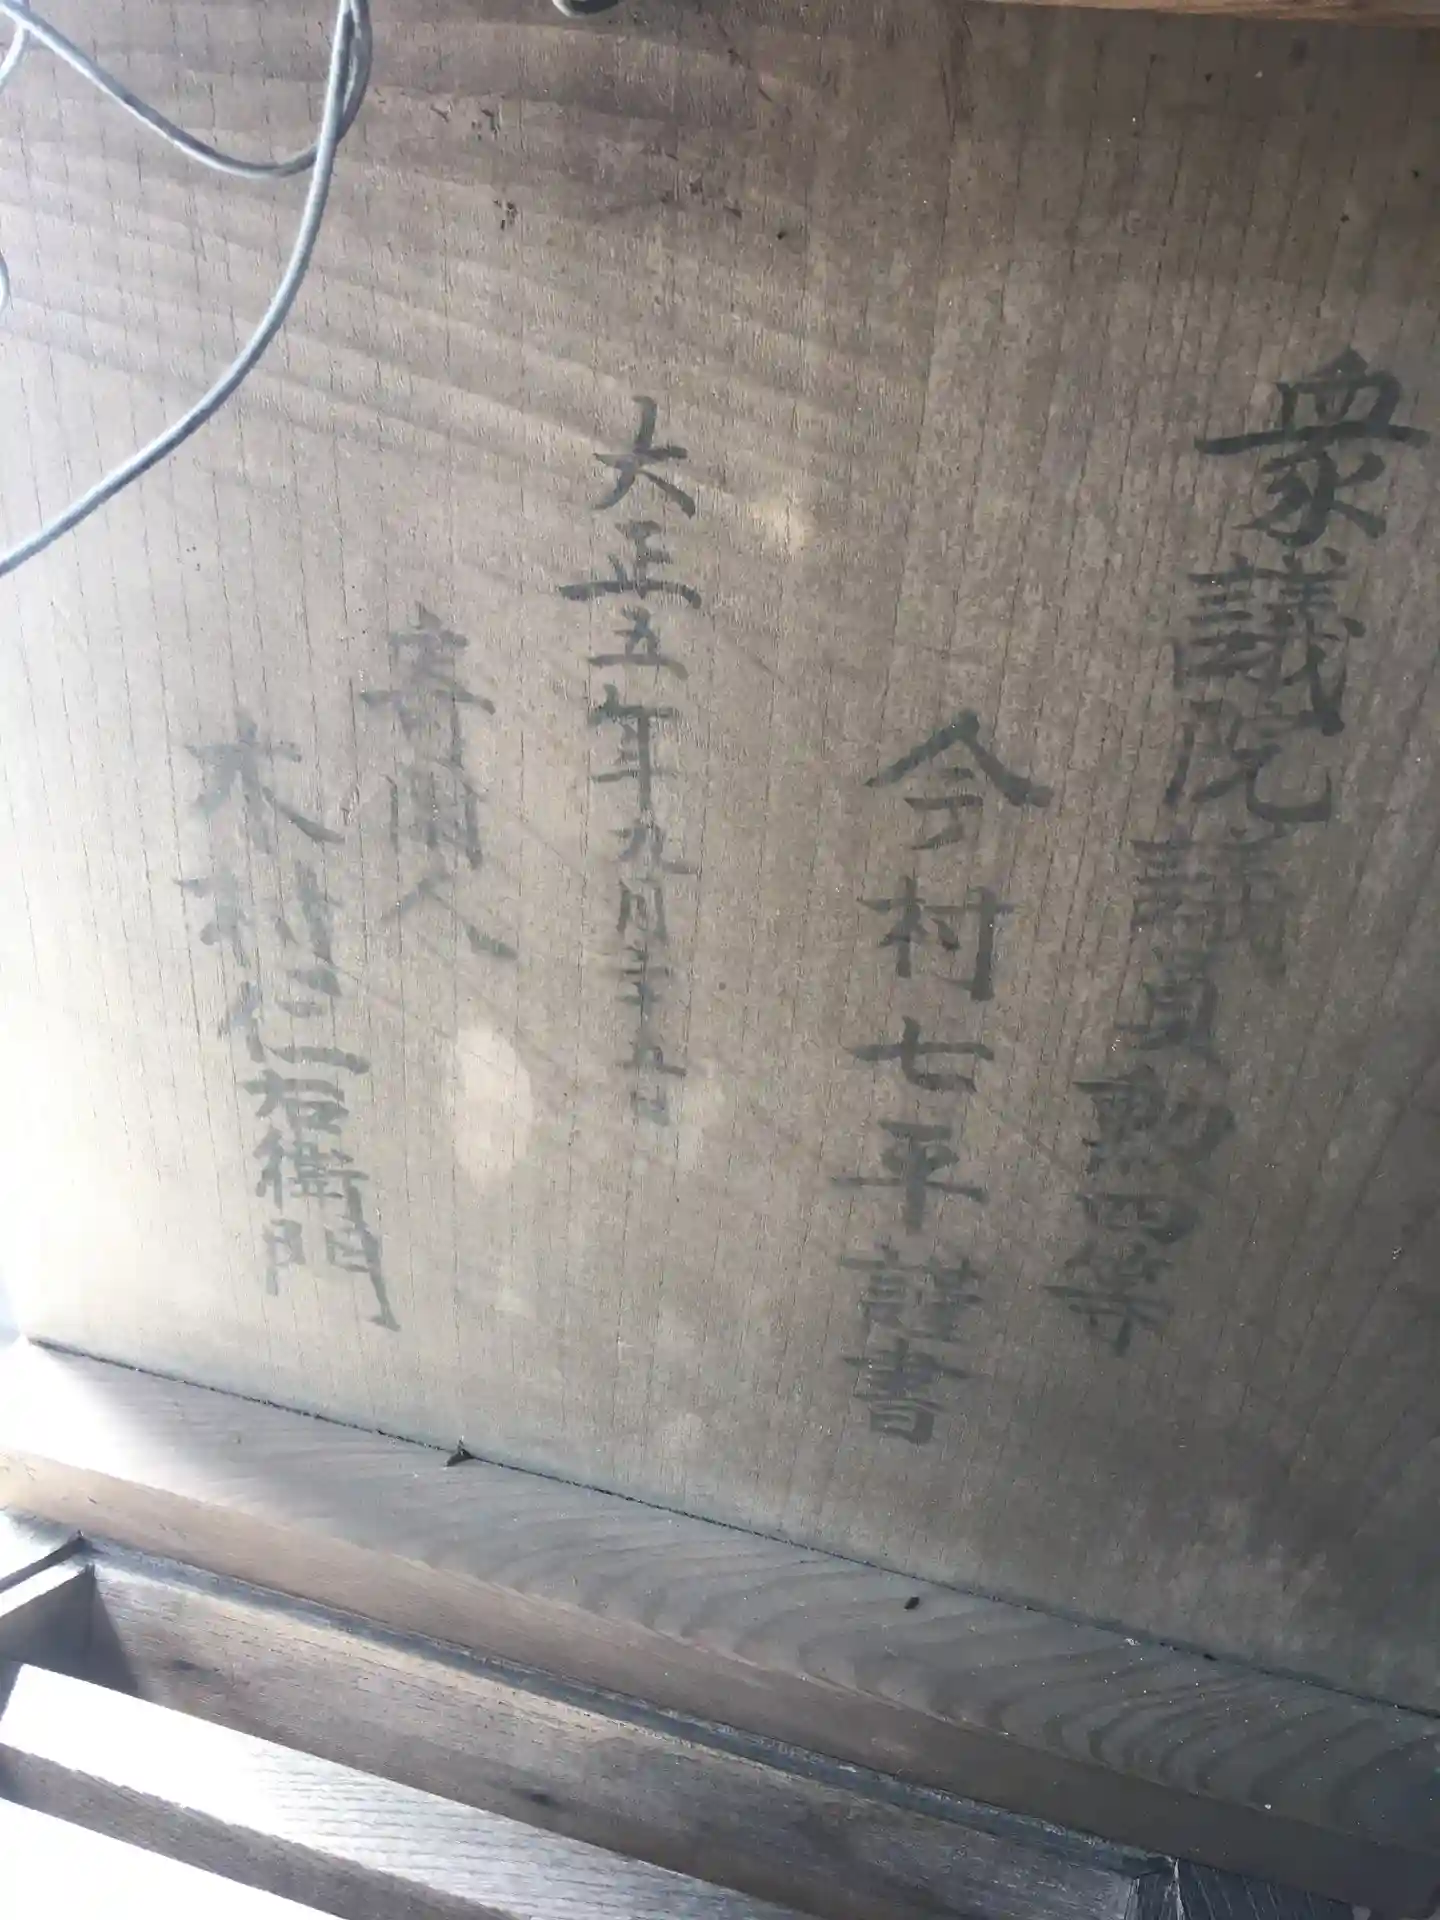 衆議院議員勲四等
今村七平謹書
大正五年九月十五日
寄附人
木村仁右衛門